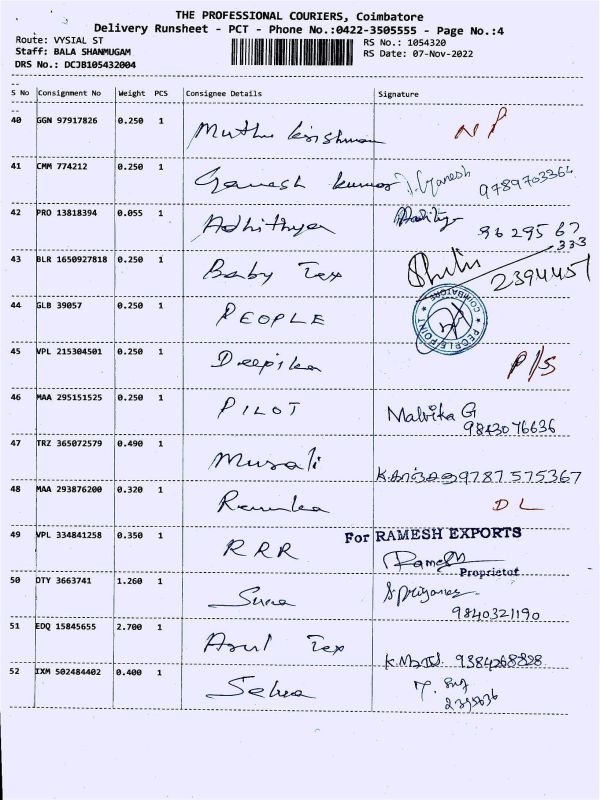 THE PROFESSIONAL COURIERS, Coimbatore
Delivery Runsheet - PCT - Phone No.:0422-3505555 - Page No.:4
Route: VYSIAL ST
RS No.: 1054320
Staff: BALA SHANMUGAM
RS Date: 07-Nov-2022
DRS No.: DCJB105432004
S No Consignment No Weight PCS Consignee Details Signature
40 GGN 97917826 0.250 1 Muthu krishnan NP
41 CMM 774212 0.250 1 Ganesh kumar J.Ganesh 9789703364
42 PRO 13818394 0.055 1 Adhithya 9629567
333
43 BLR 1650927818 0.250 1 Baby Tex 2394457
44 GLB 39057 0.250 1 PEOPLE PEOPLE POINT COIMBATORE
45 VPL 215304501 0.250 1 Deepika P/S
46 MAA 295151525 0.250 1 PILOT Malvika G
9843076636
47 TRZ 365072579 0.490 1 Murali 9787575367
48 MAA 293876200 0.320 1 Renuka DL
49 VPL 334841258 0.350 1 RRR For RAMESH EXPORTS
Ramesh
Proprietor
50 OTY 3663741 1.260 1 S.Priyanga
9840321190
51 EDQ 15845655 2.700 1 Arul Tex 9384268828
52 IXM 502484402 0.400 1 Selva